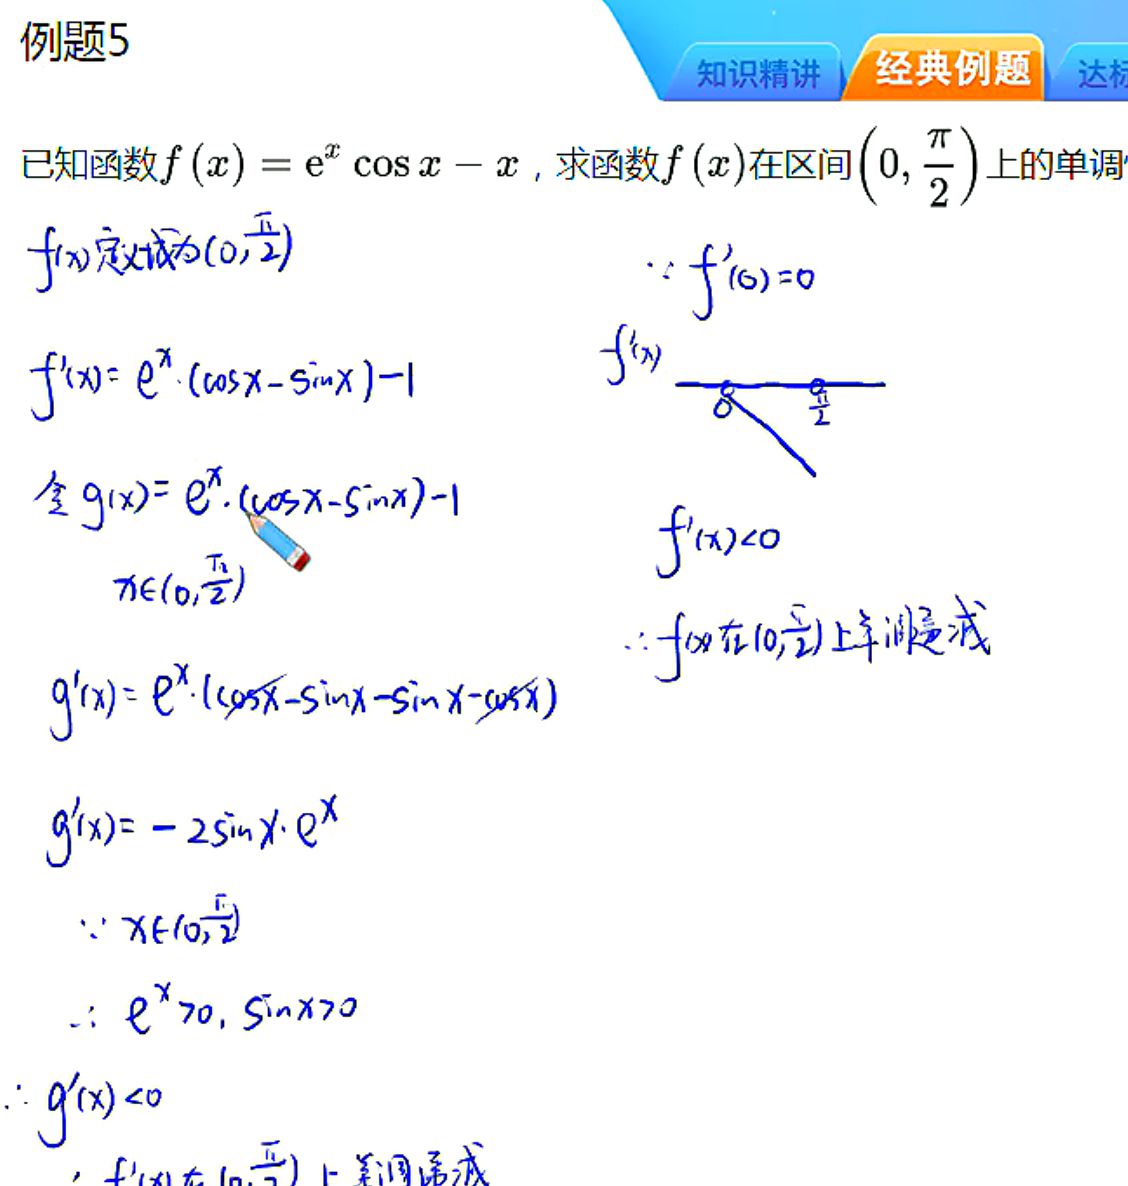 例题5
知识精讲 经典例题 达标
已知函数f(x)=e^x cos x − x，求函数f(x)在区间(0, π/2)上的单调
f(x)定义域为(0, π/2)
f'(x)=e^x·(cosx−sinx)−1
令g(x)=e^x·(cosx−sinx)−1
x∈(0, π/2)
g'(x)=e^x·(cosx−sinx−sinx−cosx)
g'(x)=−2sinx·e^x
∵ x∈(0, π/2)
∴ e^x>0, sinx>0
∴ g'(x)<0
∴ f'(x)在(0, π/2)上单调递减
∵ f'(0)=0
f'(x)
0 π/2
f'(x)<0
∴ f(x)在(0, π/2)上单调递减